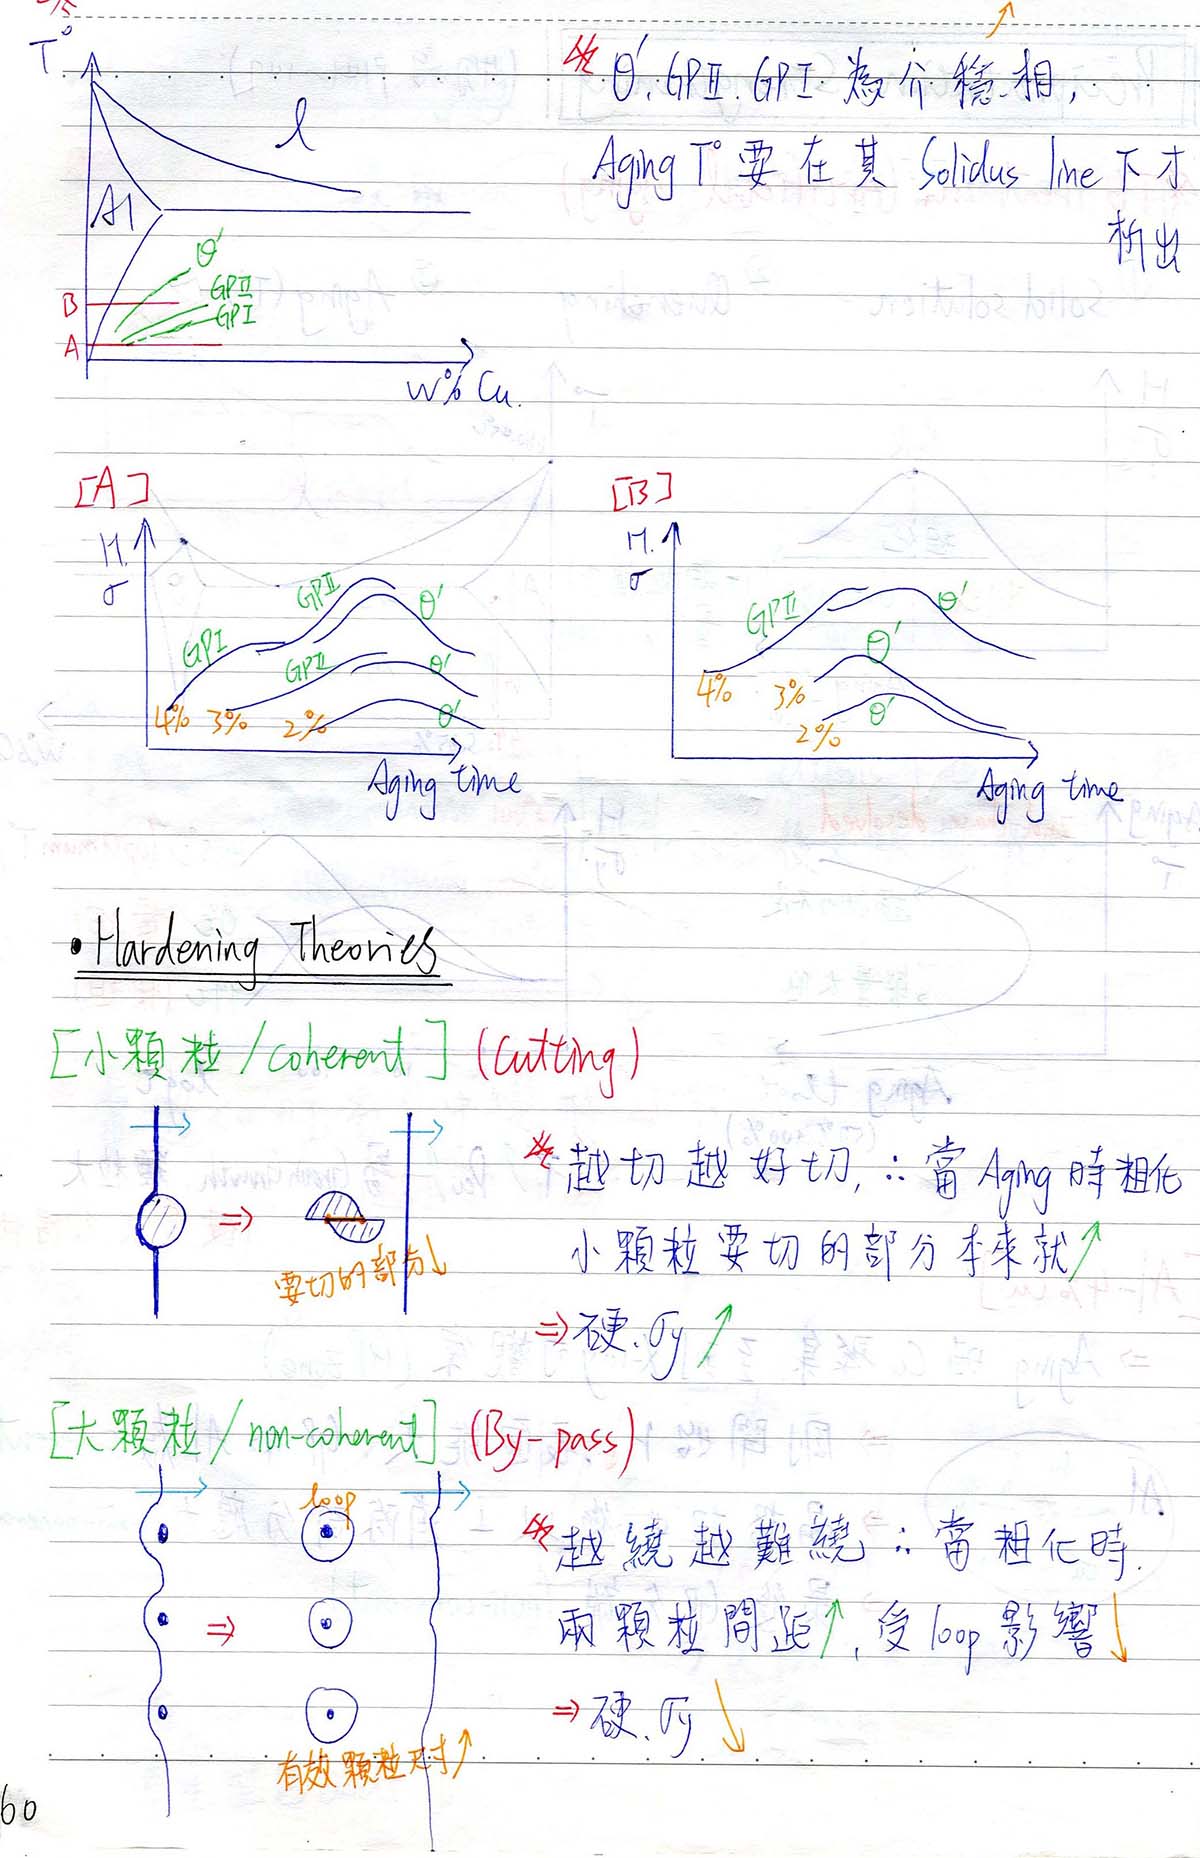 T°
l
A1
θ'
GPⅡ
GPⅠ
B
A
W% Cu.
θ'. GPⅡ. GPⅠ 為介穩相,
Aging T° 要在其 Solidus line 下才
析出
[A]
H.
σ
GPⅠ
GPⅡ
θ'
GPⅡ
θ'
θ'
4% 3% 2%
Aging time
[B]
H.
σ
GPⅡ
θ'
θ'
θ'
4% 3%
2%
Aging time
• Hardening Theories
[小顆粒/coherent] (Cutting)
⇒
要切的部分↓
越切越好切, ∴當 Aging 時粗化
小顆粒要切的部分本來就↑
⇒硬.σy↑
[大顆粒/non-coherent] (By-pass)
loop
⇒
有效顆粒尺寸↑
越繞越難繞 ∴當粗化時.
兩顆粒間距↑, 受loop影響↓
⇒硬.σy↓
60